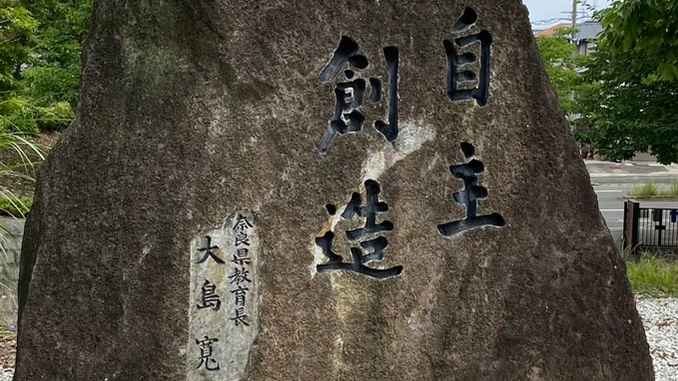 自主
創造
奈良県教育長
大島寛